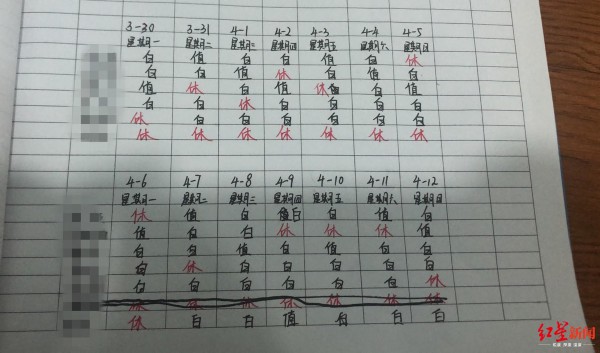 3-30 3-31 4-1 4-2 4-3 4-4 4-5
星期一 星期二 星期三 星期四 星期五 星期六 星期日
白 值 白 白 值 白 休
白 白 值 休 白 值 白
值 休 白 值 休白 白 值
白 白 休 白 白 白 白
休 白 白 白 白 白 白
休 休 休 休 休 休 休
4-6 4-7 4-8 4-9 4-10 4-11 4-12
星期一 星期二 星期三 星期四 星期五 星期六 星期日
休 值 白 值白 白 值 白
值 白 白 休 值 白 白
白 白 值 白 值 白 白
白 休 白 白 白 白 白
白 白 白 白 白 白 休
休 休 休 休 休 休 休
休 白 白 值 白 白 白
红星新闻